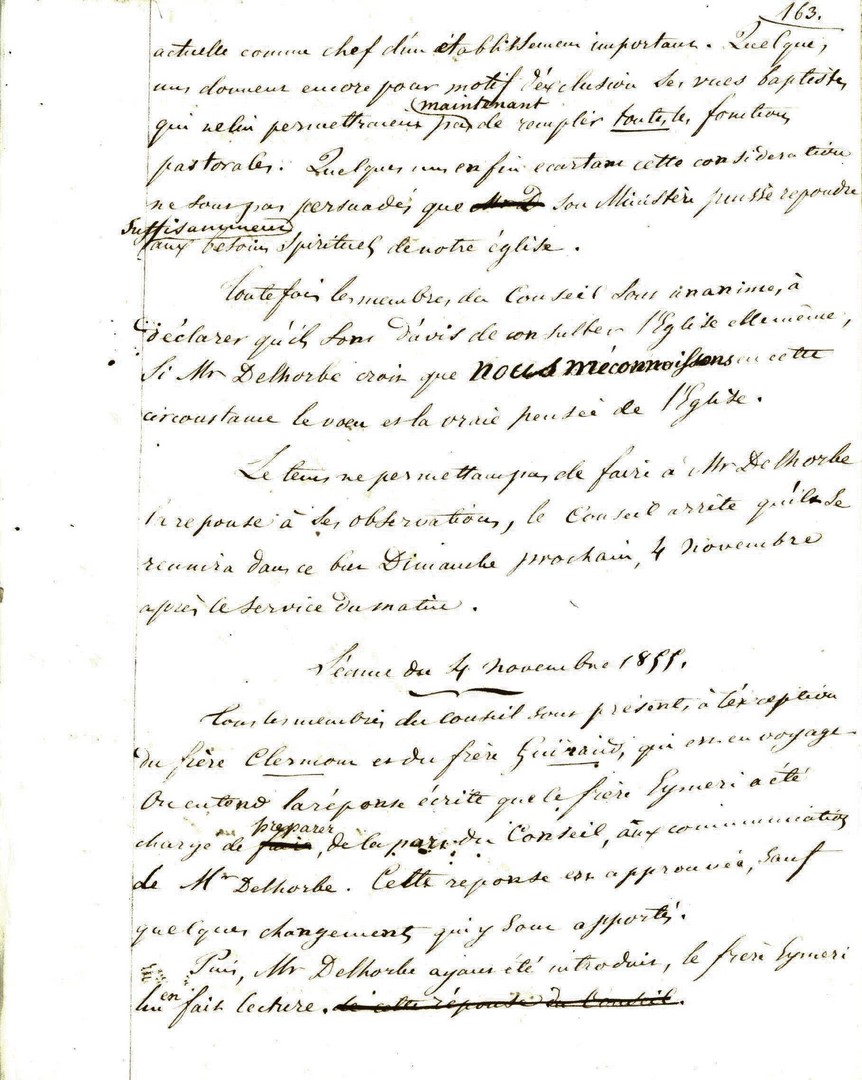 163.
actuelle comme chef d'un établissement important. Quelques
uns donnent encore pour motif d'exclusion ses vues baptistes
maintenant
qui ne lui permettraient pas de remplir toutes les fonctions
pastorales. Quelques uns enfin ecartant cette consideration
ne sont pas persuadés que Mr D son Ministère puisse repondre
suffisamment
aux besoins spirituels de notre église.
Toutefois les membres du Conseil sont unanimes à
déclarer qu'ils sont d'avis de consulter l'Eglise elle même,
Si Mr Delhorbe croit que nous méconnoissons en cette
circonstance le voeu et la vraie pensée de l'Eglise.
Le tems ne permettant pas de faire à Mr Delhorbe
la reponse à ses observations, le Conseil arrête qu'il se
reunira dans ce but Dimanche prochain, 4 novembre
après le service du matin.
Séance du 4 novembre 1855.
Tous les membres du Conseil sont présents, à l'exception
du frère Clermont et du frère Guiraud, qui est en voyage
On entend la réponse écrite que le frère Eymeri a été
preparer
chargé de faire, de la part du Conseil, aux communications
de Mr Delhorbe. Cette reponse est approuvée, sauf
quelques changements qui y sont apportés.
Puis, Mr Delhorbe ayant été introduit, le frère Eymeri
lui en fait lecture. de cette réponse du Conseil.